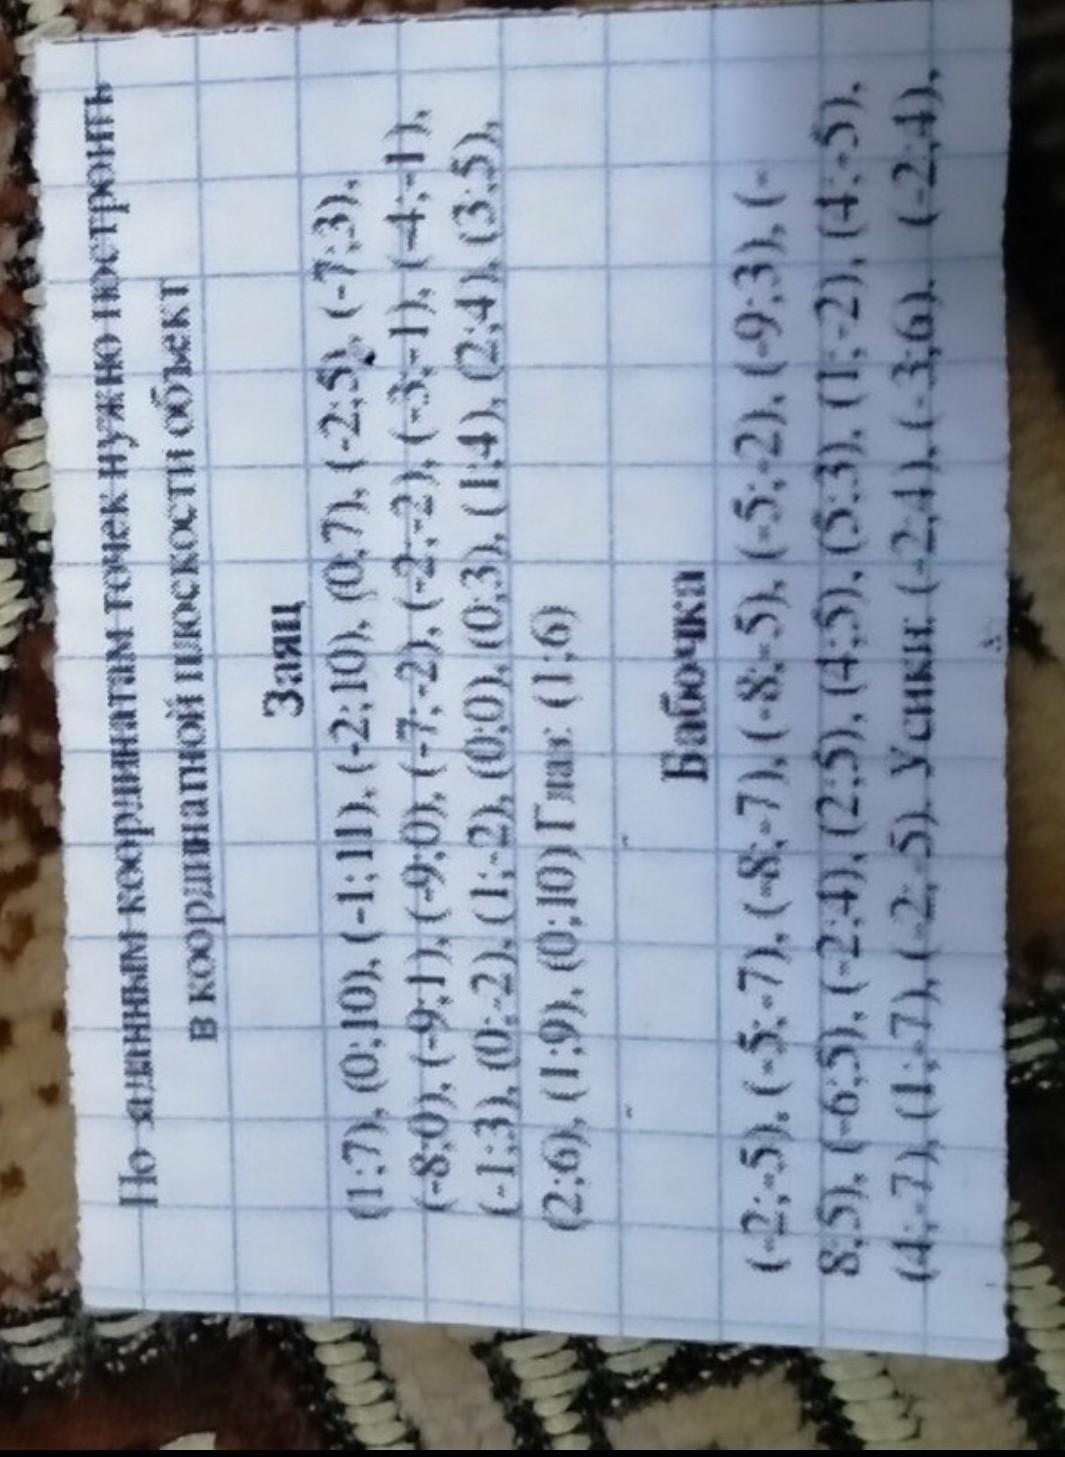 По данным координатам точек нужно построить
в координатной плоскости объект
Заяц
(1;7), (0;10), (-1;11), (-2;10), (0;7), (-2;5), (-7;3),
(-8;0), (-9;1), (-9;0), (-7;-2), (-2;-2), (-3;-1), (-4;-1),
(-1;3), (0;-2), (1;-2), (0;0), (0;3), (1;4), (2;4), (3;5),
(2;6), (1;9), (0;10) Глаз: (1;6)
Бабочка
(-2;-5), (-5;-7), (-8;-7), (-8;-5), (-5;-2), (-9;3), (-
8;5), (-6;5), (-2;4), (2;5), (4;5), (5;3), (1;-2), (4;-5),
(4;-7), (1;-7), (-2;-5). Усики: (-2;4), (-3;6). (-2;4),